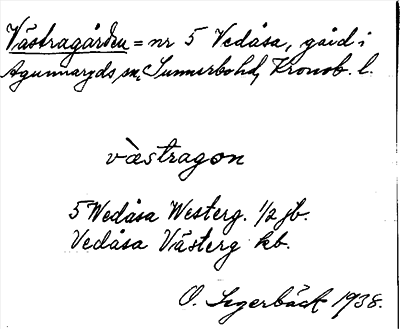 Västragården = nr 5 Vedåsa, gård i
Agunnaryds sn, Sunnerbo hd, Kronob. l.
västragon
5 Wedåsa Westerg. 1/2 jb.
Vedåsa Västerg kb.
O. Segerbäck 1938.